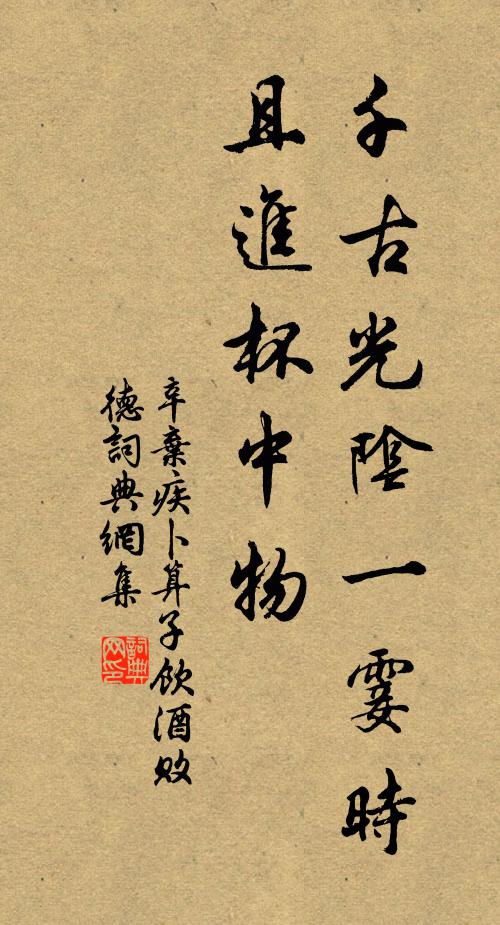 千古光陰一霎時
且進杯中物
辛棄疾卜算子飲酒敗
德詞典網集
詞典
网印